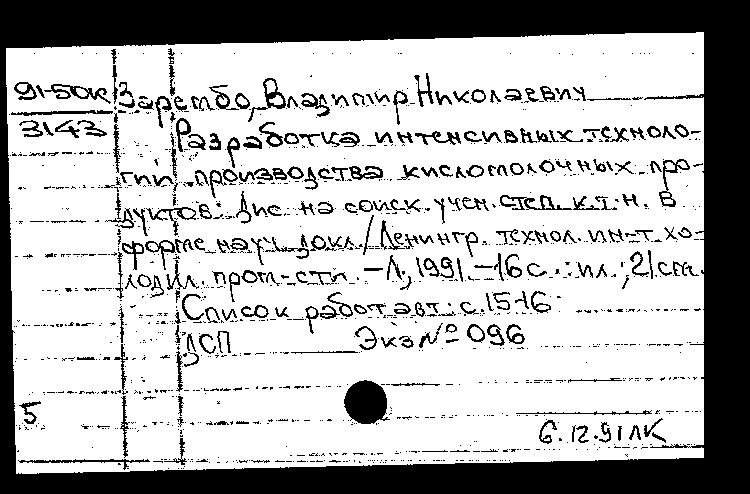 91-50к Зарембо, Владимир Николаевич
3143 Разработка интенсивных техноло-
гий производства кисломолочных про-
дуктов: Дис. на соиск. учен. степ. к.т.н. в
форме науч. докл. / Ленингр. технол. ин-т хо-
лодил. пром-сти. - Л., 1991. - 16 с. : ил.; 21 см.
Список работ авт.: с. 15-16
ДСП Экз № 096
5
6.12.91 ЛК